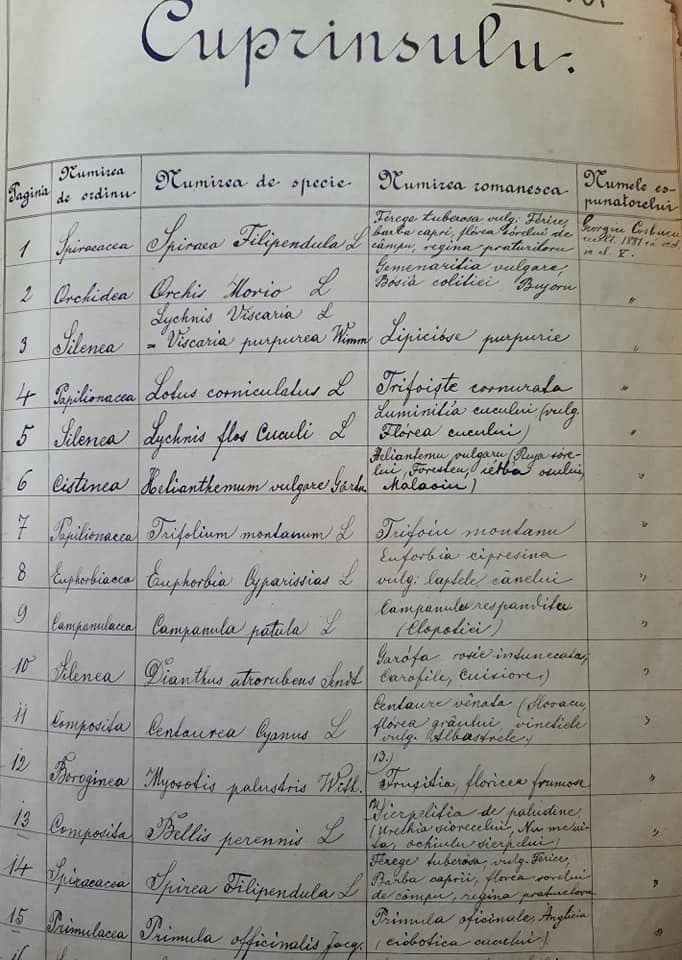 Cuprinsulu.
Pagina
Numirea
de ordinu
Numirea de specie
Numirea romanesca
Numele es-
punatorelui
1
Spiraeacea
Spiraea Filipendula L
Ferege tuberosa vulg: Férice,
barba capri, flórea sórelui de
câmpu, regina praturiloru
Georgiu Cosbucu
1881
2
Orchidea
Orchis Morio L
Gemenaritia vulgare,
Bósia colitiei, Bujoru
"
3
Silenea
Lychnis Viscaria L
= Viscaria purpurea Wimm
Lipicióse purpurie
"
4
Papilionacea
Lotus corniculatus L
Trifoiște cornurata
"
5
Silenea
Lychnis flos Cuculi L
Luminitia cucului (vulg.
Flórea cucului)
"
6
Cistinea
Helianthemum vulgare Gärtn.
Heliantemu vulgaru (Ruja sóre-
lui, Foresteu, iérba osului,
Malaoiu)
"
7
Papilionacea
Trifolium montanum L
Trifoiu montanu
"
8
Euphorbiacea
Euphorbia Cyparissias L
Euforbia cipresina
vulg: laptele cânelui
"
9
Campanulacea
Campanula patula L
Campanula respandita
(Clopotiei)
"
10
Silenea
Dianthus atrorubens
Garófa rosie intunecata,
Carofile, Cuisiore)
"
11
Composita
Centaurea Cyanus L
Centaure vênata (Slovacu,
flórea grâului, vinetiele
vulg. Albastrele.)
"
12
Boroginea
Myosotis palustris With.
13.)
Frusitia, floricea frumose
"
13
Composita
Bellis perennis L
Sierpelitia de paludine
(Urechia siorecelui, Nu me ui-
ta, ochiulu sierpelui)
"
14
Spiraeacea
Spirea Filipendula L
Ferege tuberósa, vulg. Férice,
Barba caprii, florea sorelui
de câmpu, regina praturilora
"
15
Primulacea
Primula officinalis Jacq.
Primula oficinale, Anglicia
(ciobotica cucului)
"